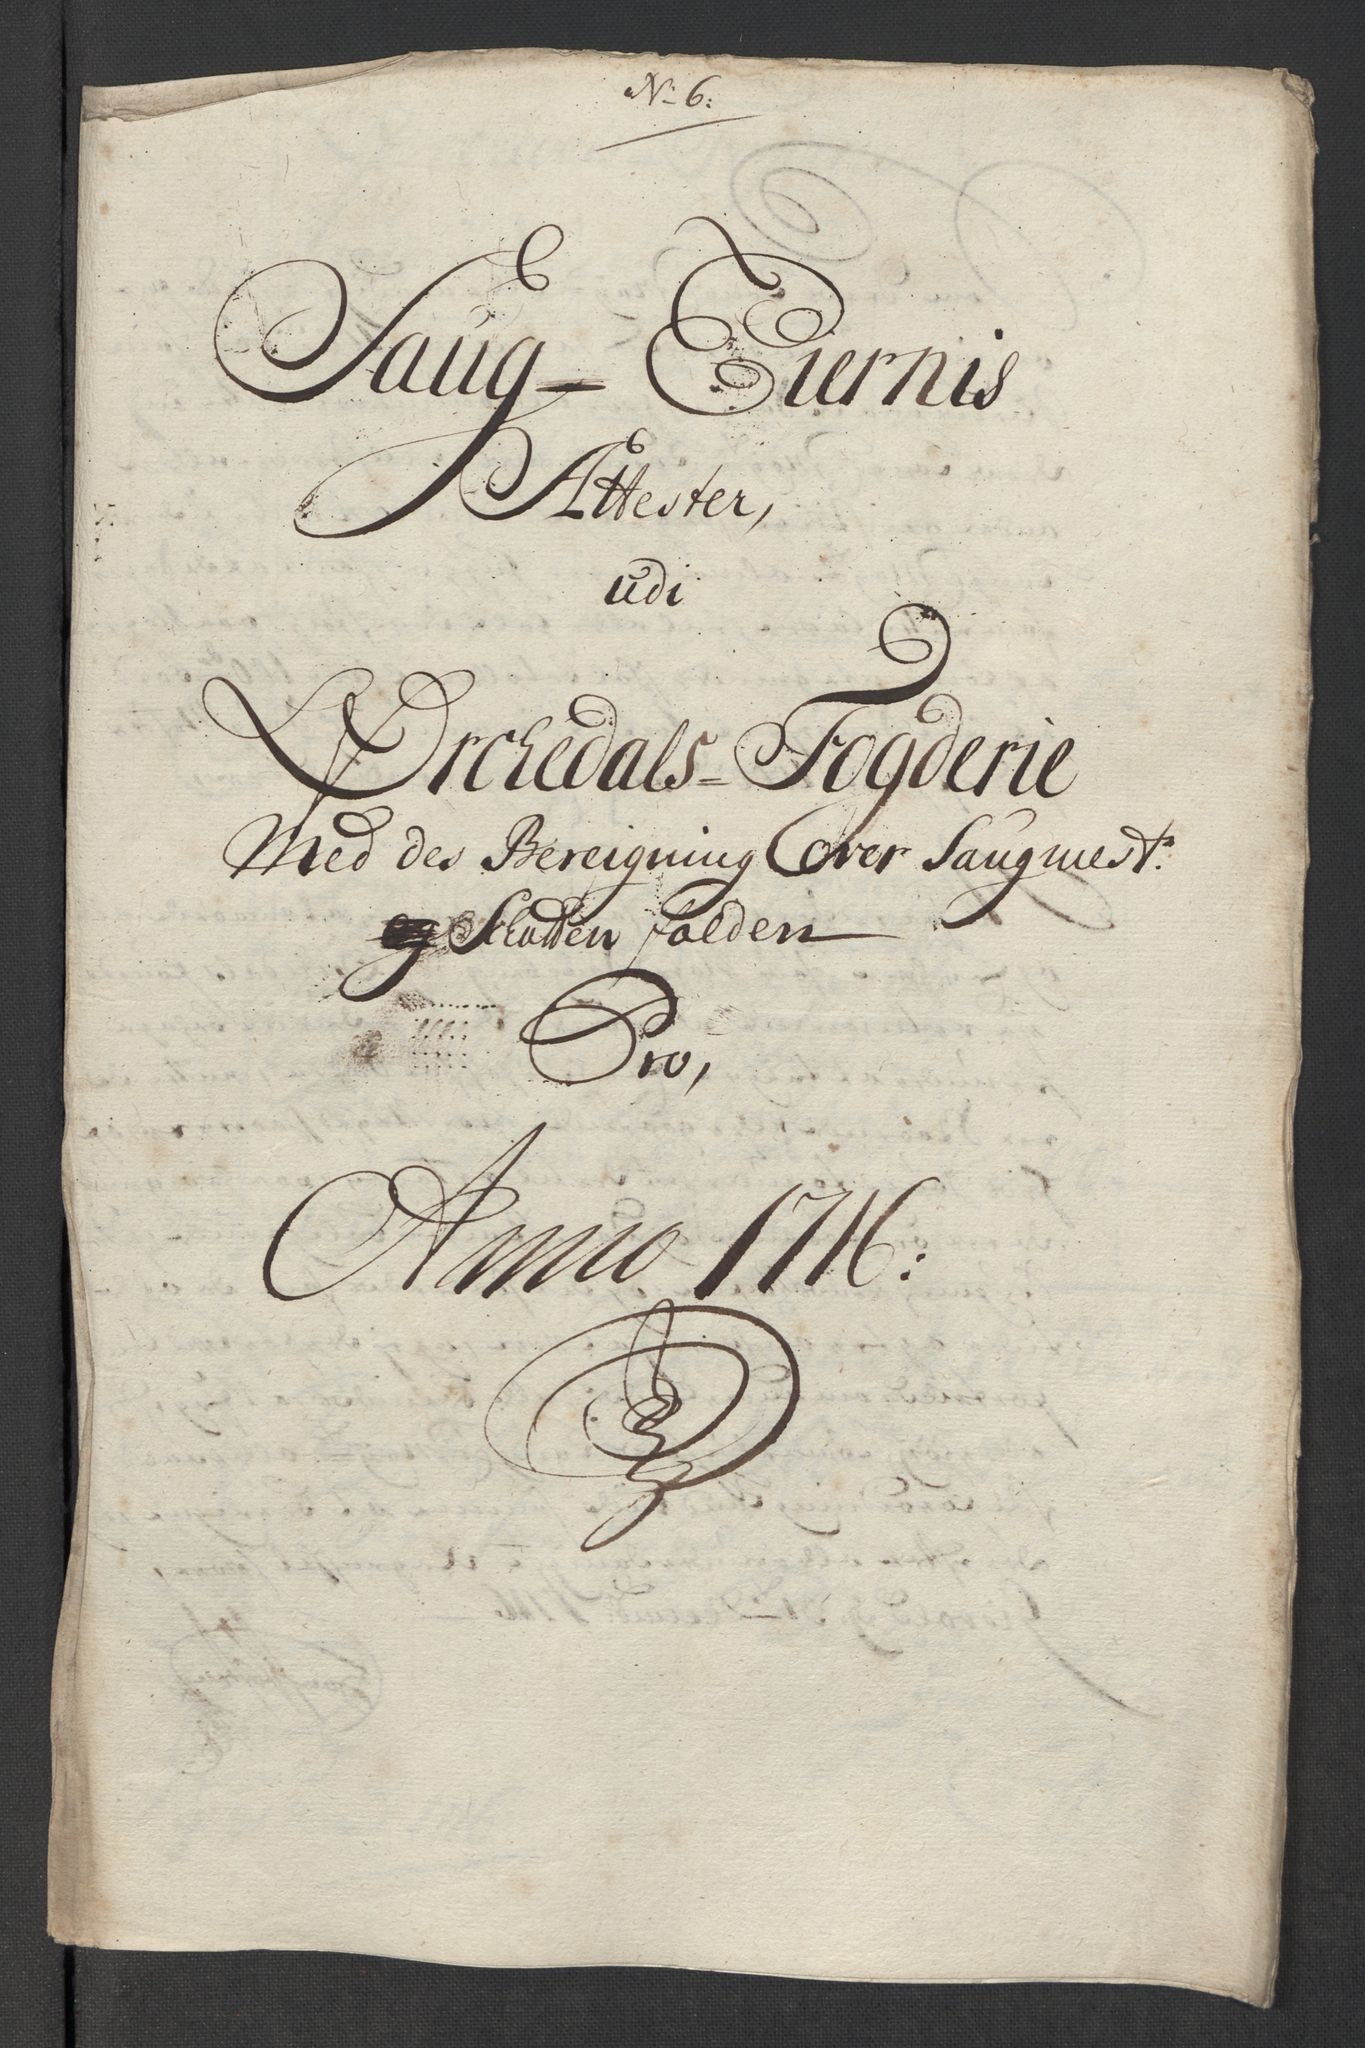 No 6:
Saug- Eiernis
Attester,
udi
Orchedals- Fogderie
Med des Bereigning Over Saugmestr.
og Skatten folden
Pro,
Anno 1716: